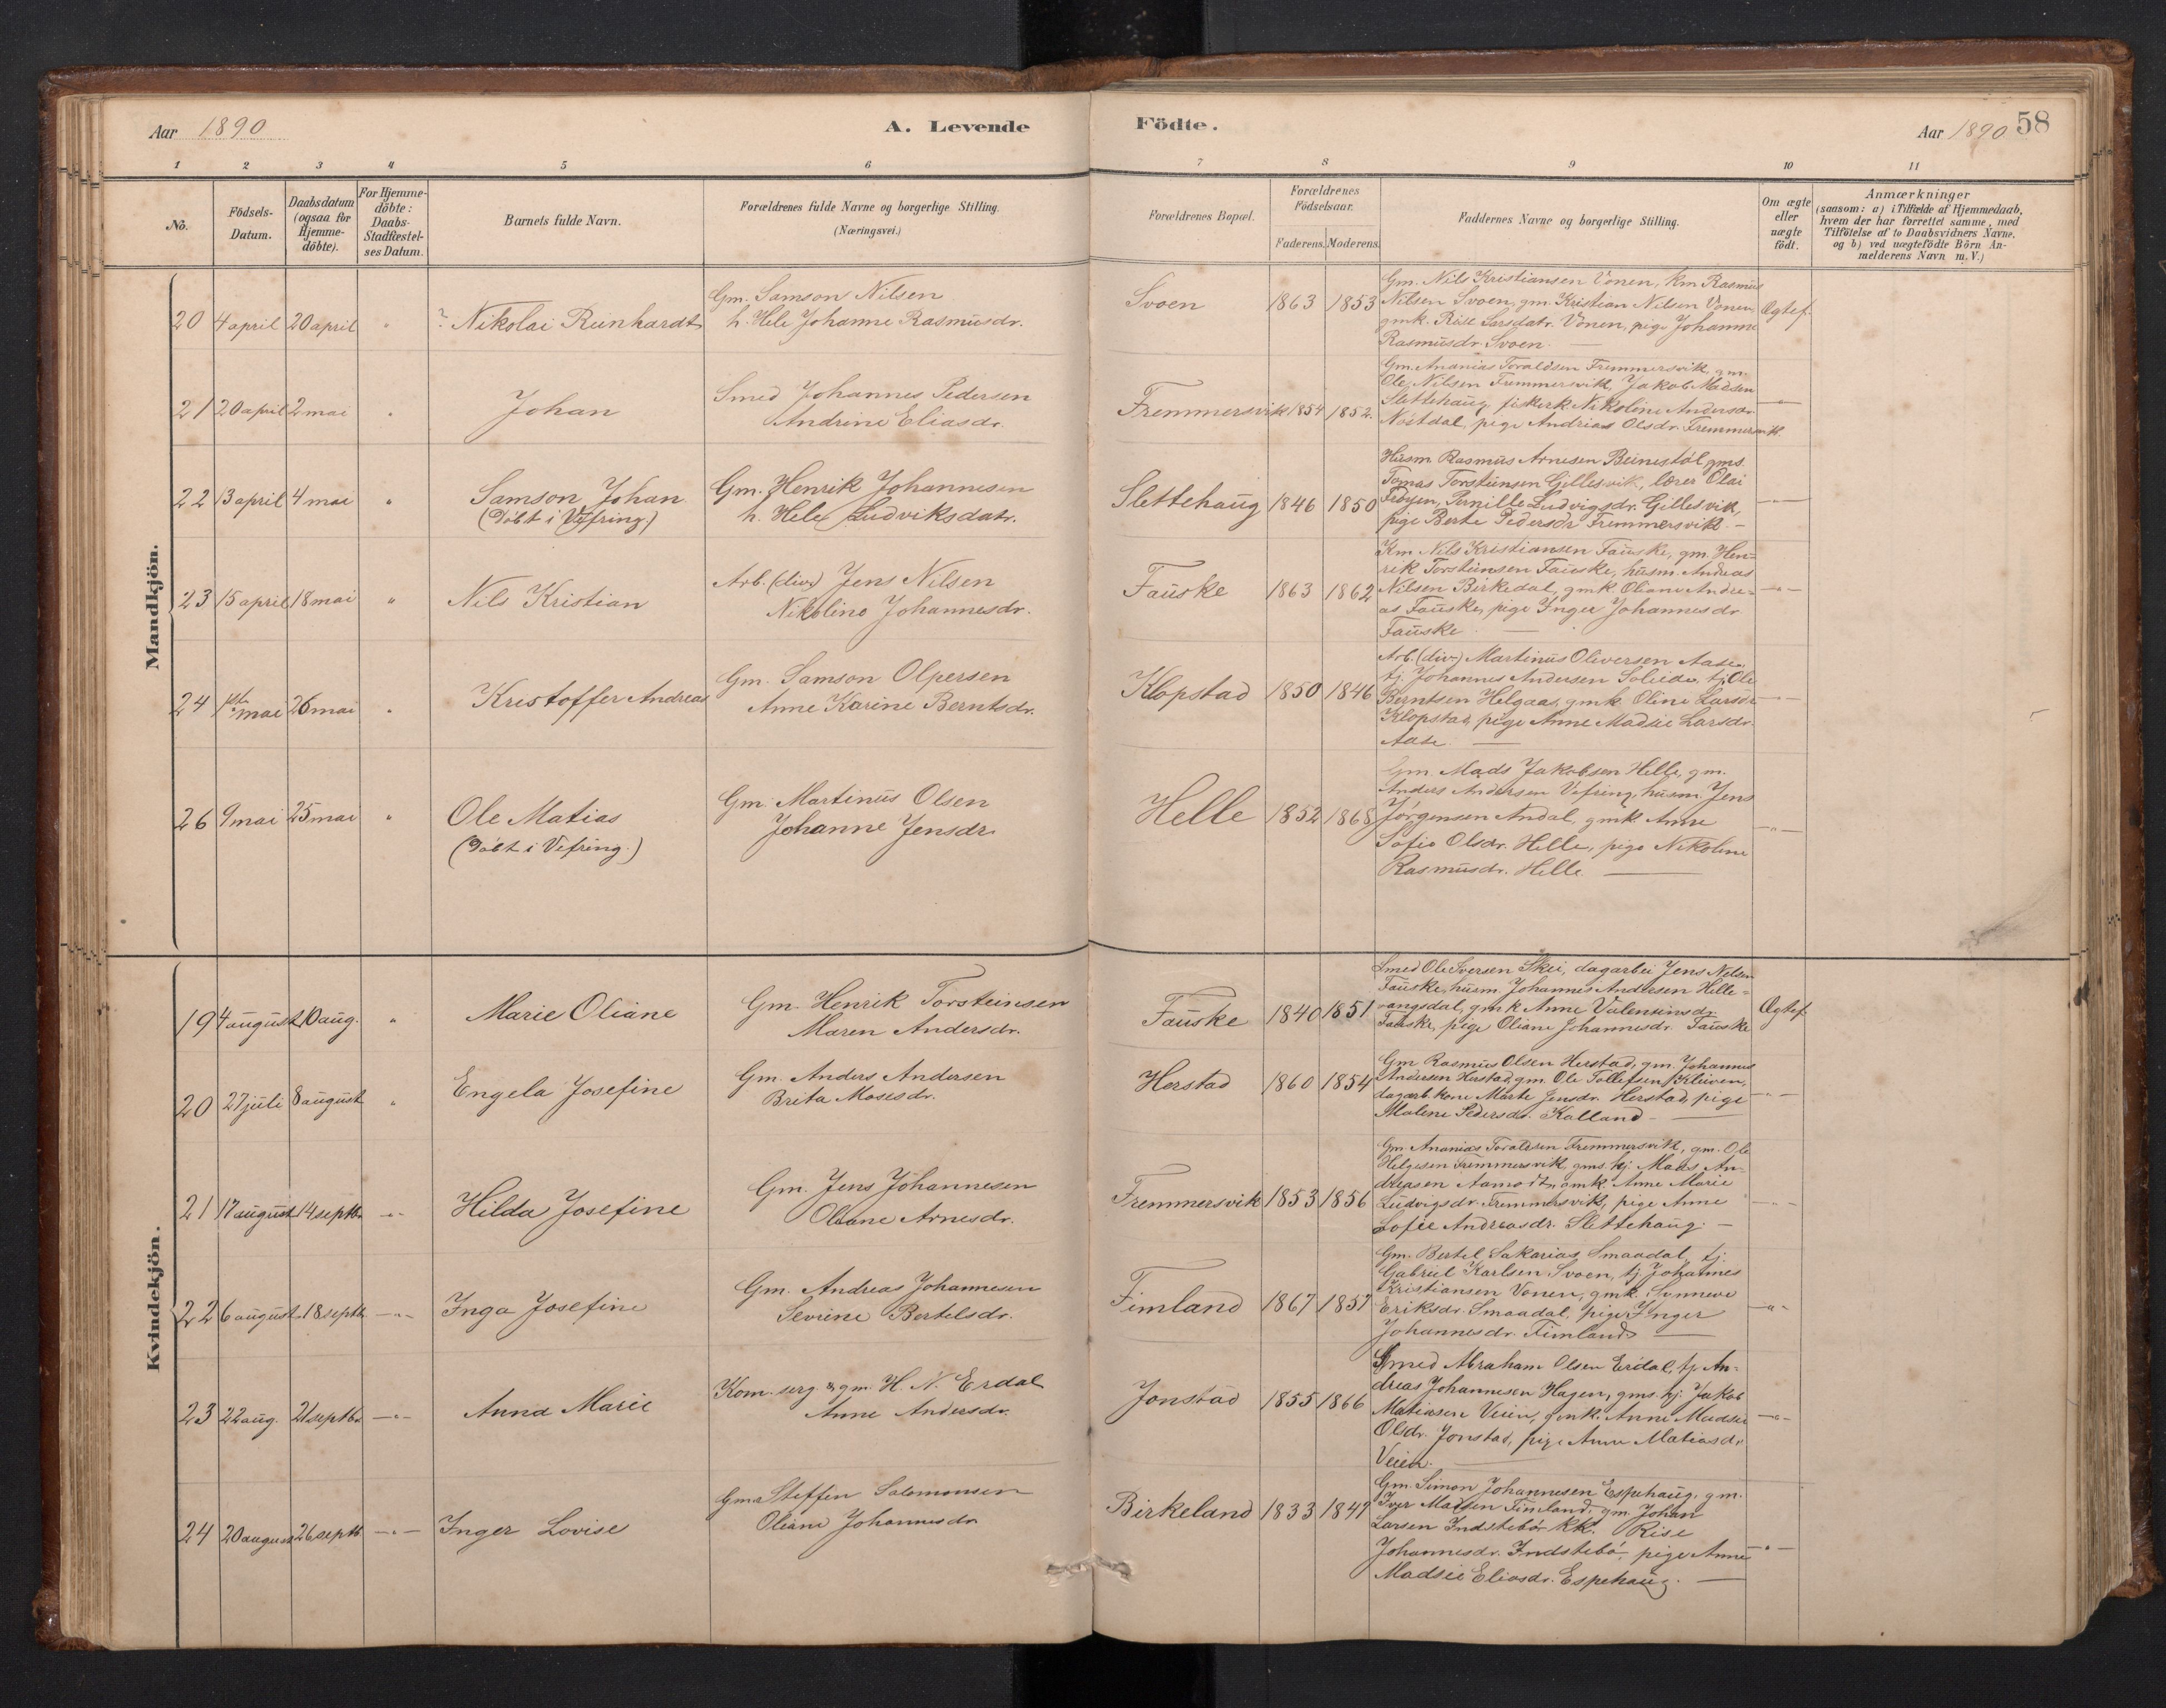 Aar 1890
A. Levende
Födte.
Aar 1890
58
1 2 3 4 5 6 7 8 9 10 11
No.
Födsels-
Datum.
Daabsdatum
(ogsaa for
Hjemme-
döbte).
For Hjemme-
döbte:
Daabs-
Stadfæstel-
ses Datum.
Barnets fulde Navn.
Forældrenes fulde Navne og borgerlige Stilling.
(Næringsvei.)
Forældrenes Bopæl.
Forældrenes
Födselsaar.
Faderens. Moderens.
Faddernes Navne og borgerlige Stilling.
Om ægte
eller
uægte
födt.
Anmærkninger
(saasom: a) i Tilfælde af Hjemmedaab,
hvem der har forrettet samme, med
Tilföielse af to Daabsvidners Navne,
og b) ved uægtefödte Börn An-
melderens Navn m. V.)
Mandkjön.
20 4 april 20 april " Nikolai Reinhardt
Gm. Samson Nilsen
h. Hele Johanne Rasmusdr.
Svoen 1863 1853
Gm. Nils Kristiansen Vonen, km Rasmus
Nilsen Svoen, gm. Kristian Nilsen Vonen,
gmk. Rise Larsdatr. Vonen, pige Johanne
Rasmusdr. Svoen.
Ægtef.
21 20 april 2 mai " Johan
Smed Johannes Pedersen
Andrine Eliasdr.
Fremmersvik 1854 1852.
Gm. Ananias Toraldsen Fremmersvik, gm.
Ole Nilsen Fremmersvik, Jakob Madsen
Slettehaug, fiskerk Nikoline Andersdr.
Nöstdal, pige Andrias Olsdr. Fremmersvik.
22 13 april 4 mai " Samson Johan
(Döbt i Vefring)
Gm. Henrik Johannesen
h. Hele Ludviksdatr.
Slettehaug 1846 1850
Husm. Rasmus Arnesen Beinestöl, gms.
Tomas Torsteinsen Gillesvik, lærer Olai
Fröyen, Pernille Ludvigsdr. Gillesvik,
pige Berte Pedersdr Fremmersvik. –
23 15 april 18 mai " Nils Kristian
Arb. (div.) Jens Nilsen
Nikoline Johannesdr.
Fauske 1863 1862
Km. Nils Kristiansen Fauske, gm. Hen-
rik Torsteinsen Fauske, husm. Andreas
Nilsen Birkedal, gmk. Oliane Andre-
as Fauske, pige Inger Johannesdr
Fauske.
24 1ste mai 26 mai " Kristoffer Andreas
Gm. Samson Olpersen
Anne Karine Berntsdr.
Klopstad 1850 1846
Arb. (div.) Martinus Oliversen Aase,
tj. Johannes Andersen Solheim, tj. Ole
Berntsen Helgaas, gmk. Oline Larsdr
Klopstad, pige Anne Madsie Larsdr.
Aase.
26 9 mai 25 mai " Ole Matias
(Döbt i Vefring.)
Gm. Martinus Olsen
Johanne Jensdr.
Helle 1852 1868
Gm. Mads Jakobsen Helle, gm.
Anders Andersen Vefring, husm. Jens
Jörgensen Andal, gmk. Anne
Sofie Olsdr. Helle, pige Nikoline
Rasmusdr. Helle.
Kvindekjön.
19 4 august 10 aug. " Marie Oliane
Gm. Henrik Torsteinsen
Maren Andersdr.
Fauske 1840 1851
Smed Ole Iversen Skei, dagarbei Jens Nilsen
Fauske, husm. Johannes Andresen Helle-
vangsdal, gmk Anne Valentinsdr.
Fauske, pige Oliane Johannesdr. Fauske
Ægtef.
20 27 juli 8 august " Engela Josefine
Gm. Anders Andersen
Brita Mosesdr.
Herstad 1860 1854
Gm Rasmus Olsen Herstad, gm. Johannes
Andersen Herstad, gm. Ole Tollefsen Kluven,
dagarb. kone Marte Jensdr. Herstad, pige
Malene Pedersdr. Kalland
21 17 august 14 septbr. Hilda Josefine
Gm. Jens Johannesen
Oliane Arnesdr.
Fremmersvik 1853 1856
Gm Ananias Toraldsen Fremmersvik, gm. Ole
Helgesen Fremmersvik, gms. tj. Mads An-
dreasen Aamodt, gmk. Anne Marie
Ludvigsdr. Fremmersvik, pige Anne
Sofie Andreasdr. Slettehaug. –
22 6 august 18 septb. Inga Josefine
Gm. Andrea Johannesen
Severine Bertelsdr.
Fimland 1867 1857
Gm. Bertel Sakarias Smaadal, tj.
Gabriel Karlsen Svoen, tj. Johannes
Kristiansen Vonen, gmk. Sunneve
Eriksdr. Smaadal, pige Inger
Johannesdr. Fimland
23 22 aug. 21 septbr. Anna Marie
Kom. serg & gm. H. N. Erdal
Anne Andersdr.
Jonstad 1855 1866
Smed Abraham Olsen Erdal, tj. An-
dreas Johannesen Hagen, gms. tj. Jakob
Matiasen Veien, gmk. Anne Madsie
Olsdr. Jonstad, pige Anne Matiasdr.
Veien.
24 20 august 26 septb Inger Lovise
Gm. Steffen Salomonsen
Oliane Johannesdr.
Birkeland 1833 1847
Gm. Simon Johannesen Espehaug, gm.
Iver Madsen Fimland, gm. Johan
Larsen Indstebö kk. Rise
Johannesdr. Indstebö, pige Anne
Madsie Eliasdr. Espehaug.